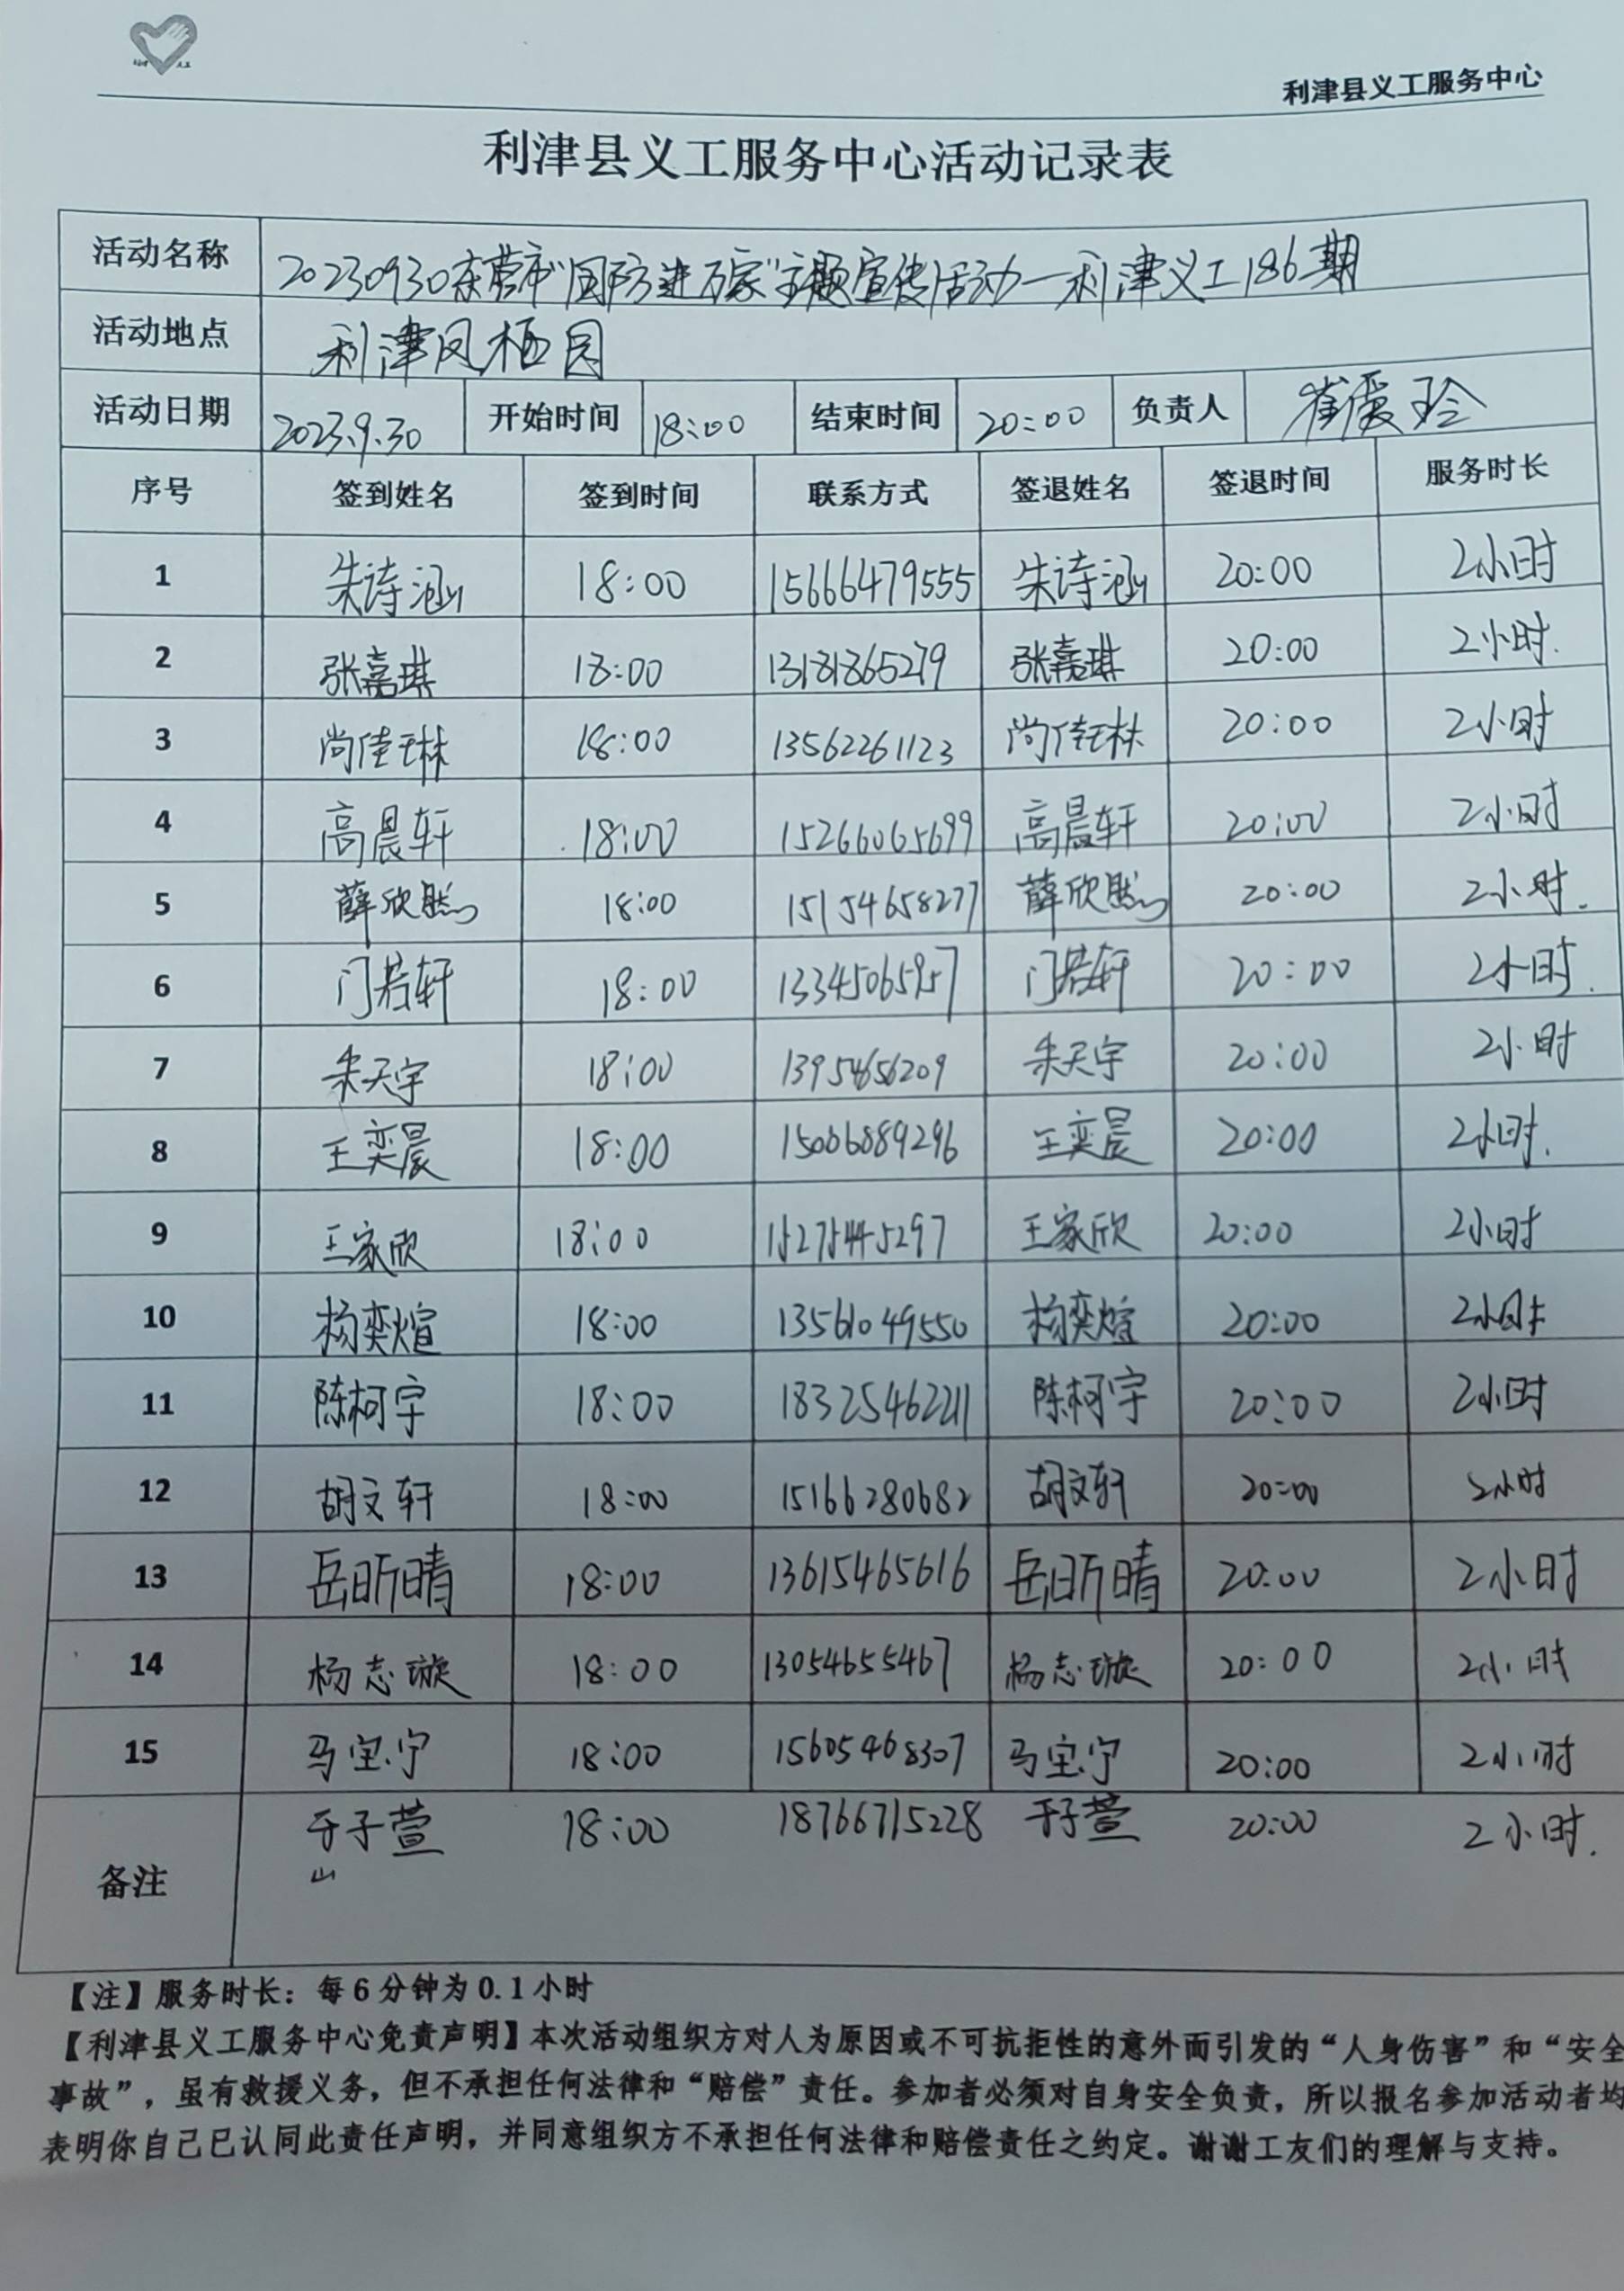 利津义工
利津县义工服务中心
利津县义工服务中心活动记录表
活动名称 20230930东营市"国防进万家"主题宣传活动—利津义工186期
活动地点 利津凤栖园
活动日期 2023.9.30 开始时间 18:00 结束时间 20:00 负责人 崔爱玲
序号 签到姓名 签到时间 联系方式 签退姓名 签退时间 服务时长
1 朱诗涵 18:00 15666479555 朱诗涵 20:00 2小时
2 张嘉琪 18:00 13181865279 张嘉琪 20:00 2小时.
3 尚佳琳 18:00 13562261123 尚佳琳 20:00 2小时
4 高晨轩 18:00 15266065699 高晨轩 20:00 2小时
5 薛欣然 18:00 15154658277 薛欣然 20:00 2小时.
6 门若轩 18:00 13345065957 门若轩 20:00 2小时.
7 朱天宇 18:00 20:00 2小时
8 王奕晨 18:00 15006889296 王奕晨 20:00 2小时.
9 王家欣 18:00 王家欣 20:00 2小时
10 杨奕煊 18:00 13561049550 杨奕煊 20:00 2小时
11 陈柯宇 18:00 18325462211 陈柯宇 20:00 2小时
12 胡文轩 18:00 15166280682 胡文轩 20:00 2小时
13 岳昕晴 18:00 13615465616 岳昕晴 20:00 2小时
14 杨志璇 18:00 13054655467 杨志璇 20:00 2小时
15 马宝宁 18:00 15605468307 马宝宁 20:00 2小时
备注 于子萱 18:00 18766715228 于子萱 20:00 2小时.
【注】服务时长：每6分钟为0.1小时
【利津县义工服务中心免责声明】本次活动组织方对人为原因或不可抗拒性的意外而引发的“人身伤害”和“安全
事故”，虽有救援义务，但不承担任何法律和“赔偿”责任。参加者必须对自身安全负责，所以报名参加活动者均
表明你自己已认同此责任声明，并同意组织方不承担任何法律和赔偿责任之约定。谢谢工友们的理解与支持。